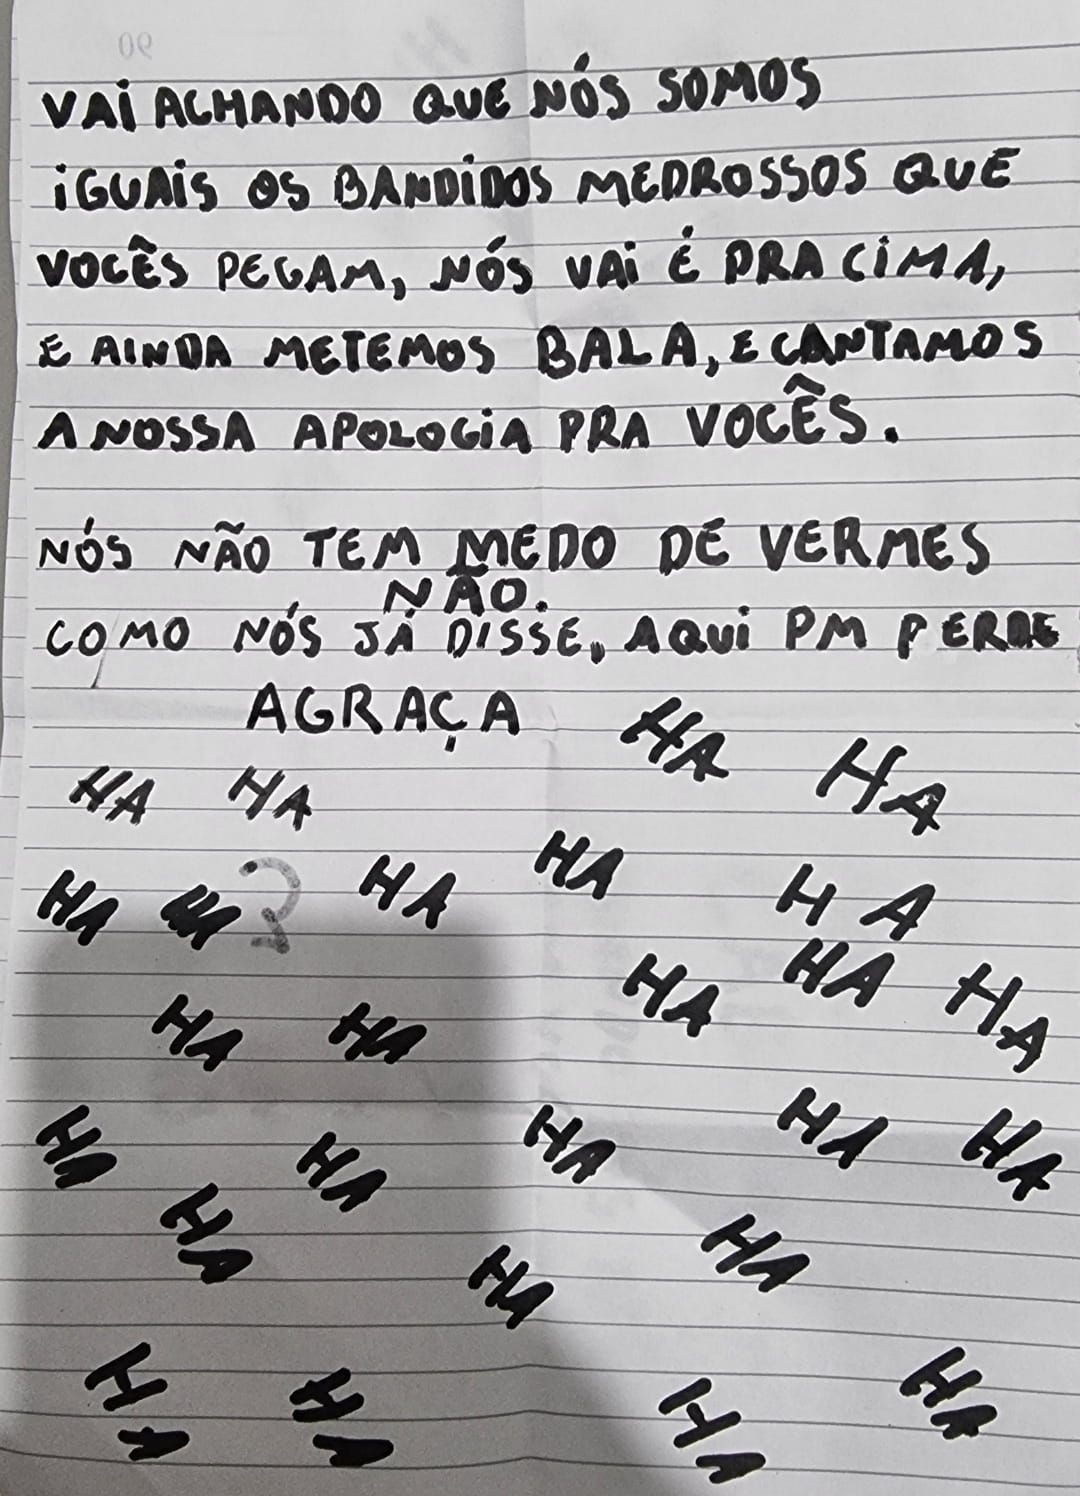 VAI ACHANDO QUE NÓS SOMOS
IGUAIS OS BANDIDOS MEDROSSOS QUE
VOCÊS PEGAM, NÓS VAI É PRA CIMA,
E AINDA METEMOS BALA, E CANTAMOS
A NOSSA APOLOGIA PRA VOCÊS.
NÓS NÃO TEM MEDO DE VERMES
NÃO.
COMO NÓS JÁ DISSE, AQUI PM PERDE
AGRAÇA
HA HA
HA HA
HA HA HA HA HA
HA HA HA
HA HA
HA HA HA HA HA
HA HA HA
HA HA HA HA